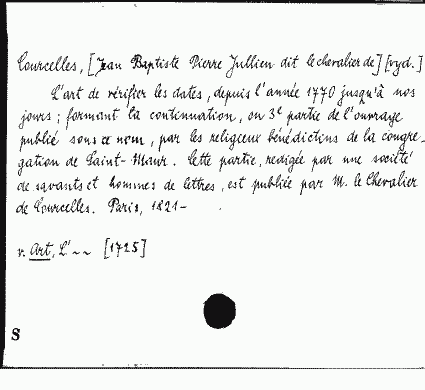 Courcelles, [Jean Baptiste Pierre Jullien dit le chevalier de] [wyd.]
L'art de vérifier les dates, depuis l'année 1770 jusqu'à nos
jours; formant la continuation, ou 3e partie de l'ouvrage
publié sous ce nom, par les religieux bénédictins de la congré-
gation de Saint-Maur. Cette partie, redigée par une société
de savants et hommes de lettres, est publiée par M. le Chevalier
de Courcelles. Paris, 1821-
v. Art, L' ~~ [1725]
S